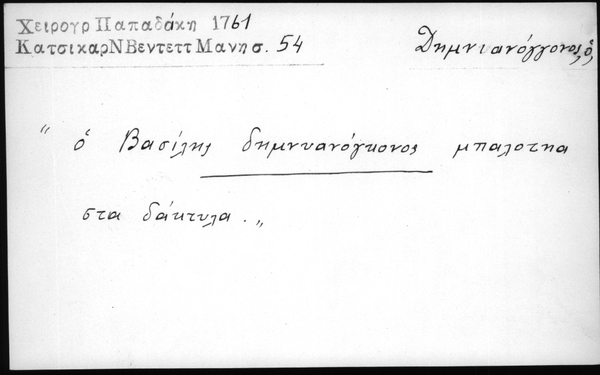 Χειρογρ Παπαδάκη 1761
ΚατσικαρΝΒεντεττ Μανης. 54
Δημνιανόγγονος, ὁ
" ὁ Βασίλης δημνυανόγκονος μπαλοτηα
στα δάκτυλα. „